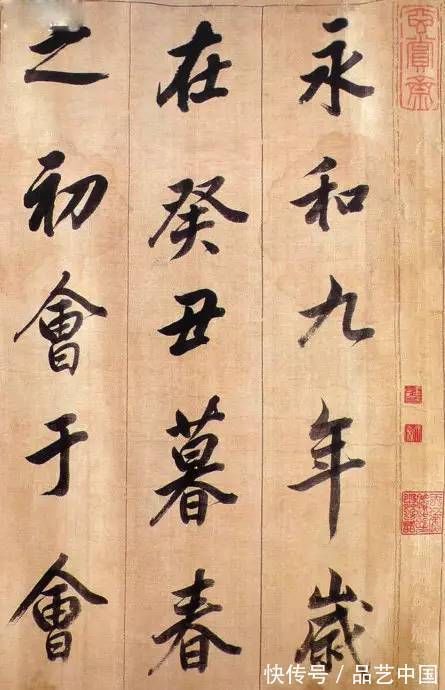 永和九年歲
在癸丑暮春
之初會于會
快传号 / 品艺中国